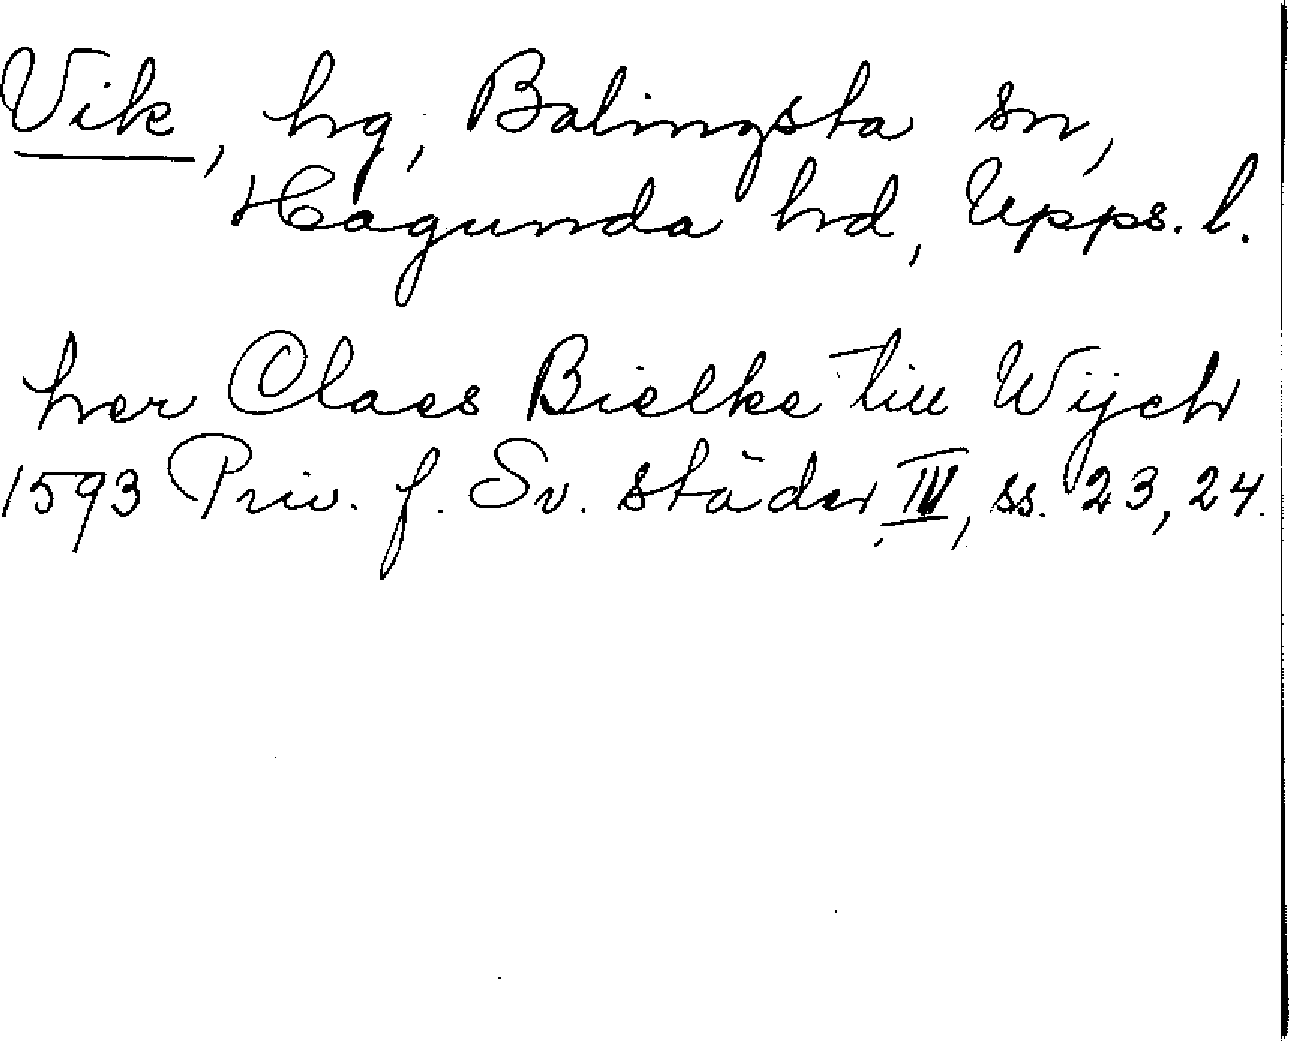 Vik, hg, Balingsta sn,
Hagunda hd, Upps. l.
her Claes Bielke till Wijch
1593 Priv. f. Sv. städer, IV, ss. 23, 24.